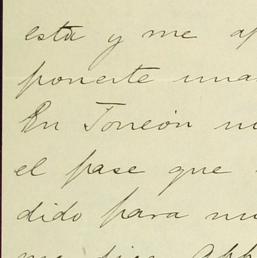 esta y me
ponerte una
En Torreón
el pase que
dido para
me